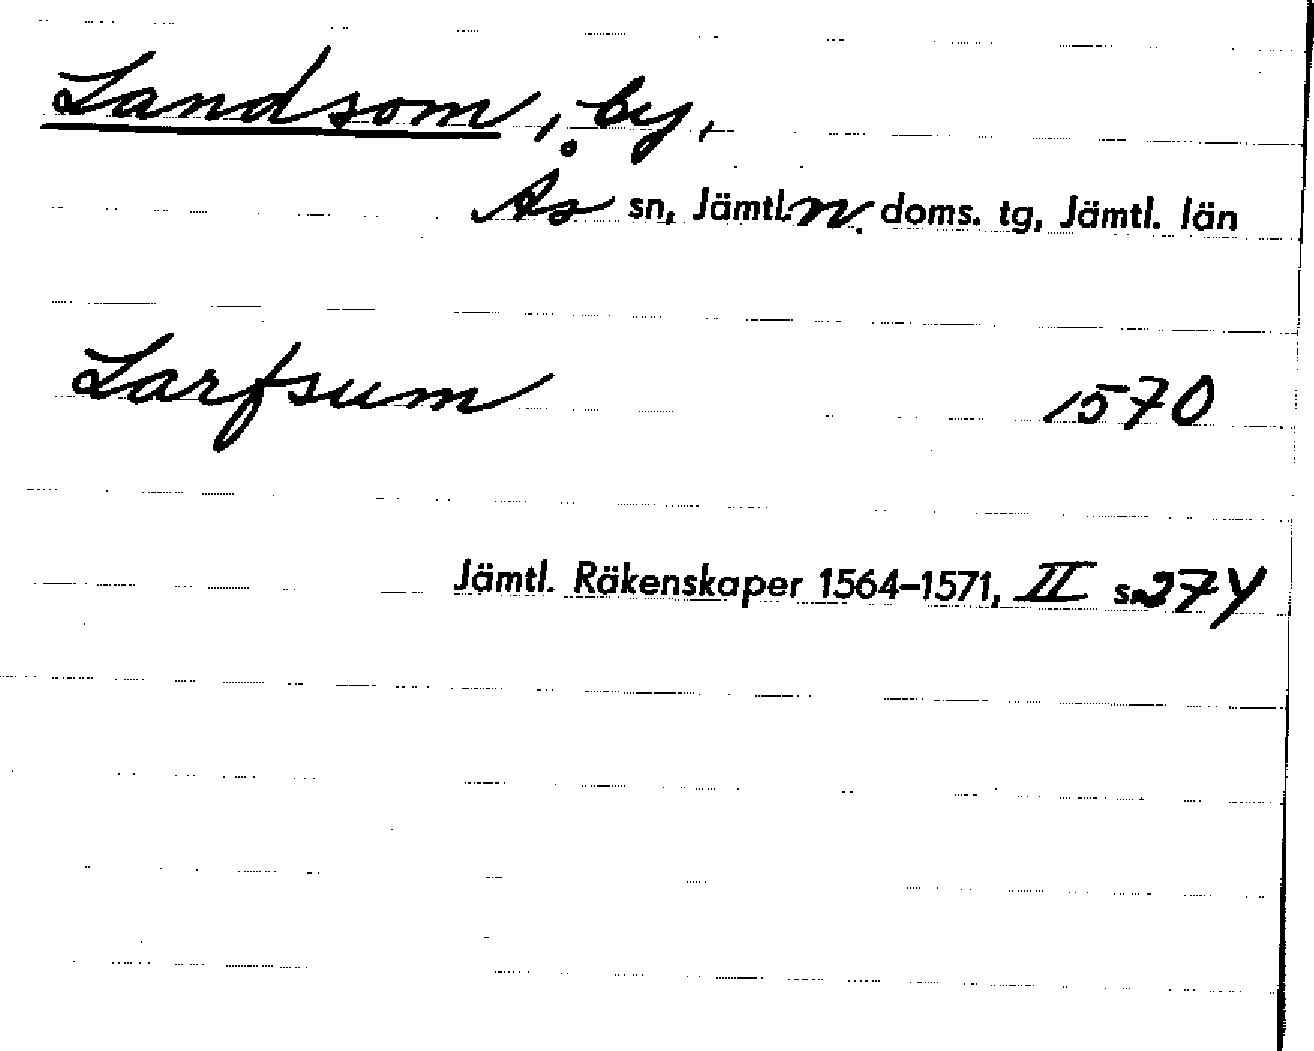 Landsom, by,
Ås sn, Jämtl. n. doms. tg, Jämtl. län
Larfsum 1570
Jämtl. Räkenskaper 1564–1571, II s. 274